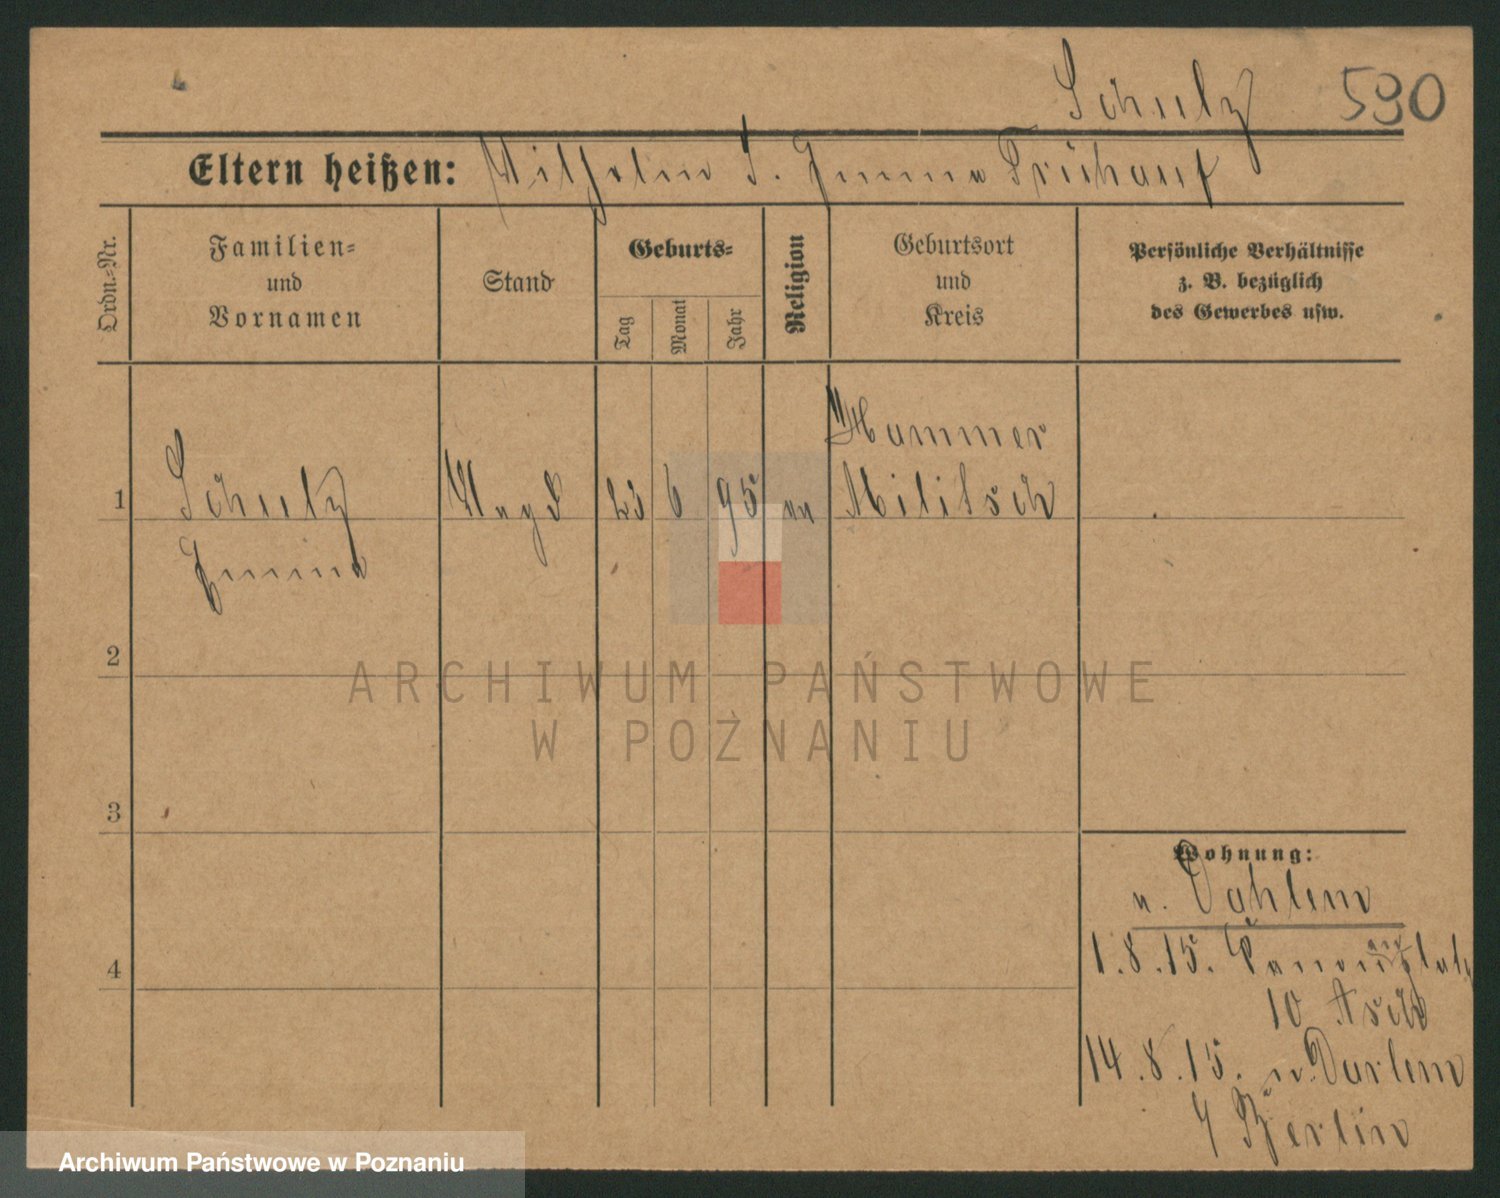 Schulz 590
Eltern heißen: Wilhelm S. Emma Frühauf
Ordn.-Nr.
Familien-
und
Vornamen
Stand
Geburts-
Tag
Monat
Jahr
Religion
Geburtsort
und
Kreis
Persönliche Verhältnisse
z. B. bezüglich
des Gewerbes usw.
Hammer
1 Schulz Magd 23 6 95 Militsch
Emma
2
3
4
Wohnung:
n. Dahlem
1.8.15.
10
14.8.15. n. Darlem
Berlin
ARCHIWUM PAŃSTWOWE
W POZNANIU
Archiwum Państwowe w Poznaniu